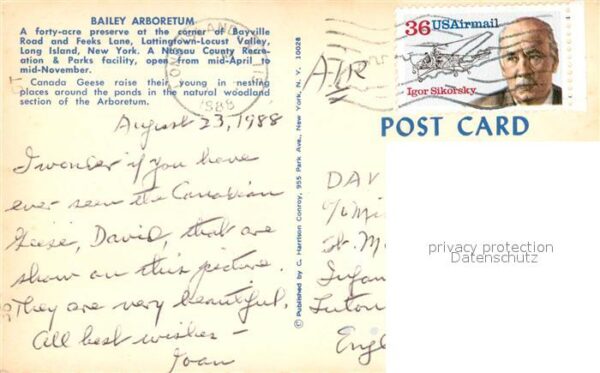 BAILEY ARBORETUM
A forty-acre preserve at the corner of Bayville
Road and Feeks Lane, Lattingtown-Locust Valley,
Long Island, New York. A Nassau County Recre-
ation & Parks facility, open from mid-April to
mid-November.
Canada Geese raise their young in nesting
places around the ponds in the natural woodland
section of the Arboretum.
August 23, 1988
I wonder if you have
ever seen the Canadian
Geese, David, that are
show on this picture.
They are very beautiful.
All best wishes –
Joan
© Published by C. Harrison Conroy, 955 Park Ave., New York, N. Y. 10028
1988
AIR
36 USAirmail
Igor Sikorsky
POST CARD
DAV
c/o Mi
St. M
Luton
Engl
privacy protection
Datenschutz